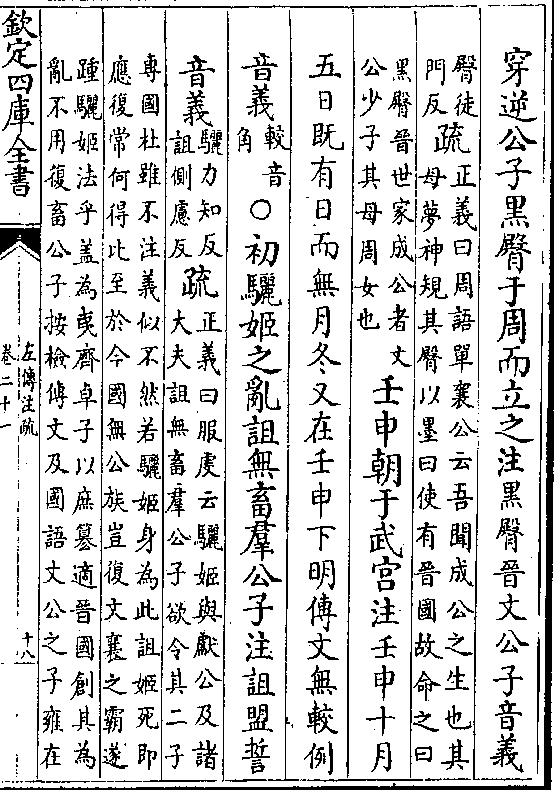 穿逆公子黑臀于周而立之注黑臀晉文公子音義
臀徒
門反
疏
正義曰周語單襄公云吾聞成公之生也其
母夢神規其臀以墨曰使有晉國故命之曰
黑臀晉世家成公者文
公少子其母周女也
壬申朝于武宮注壬申十月
五日既有日而無月冬又在壬申下明傳文無較例
音義
較音
角
○初驪姬之亂詛無畜羣公子注詛盟誓
音義
驪力知反
詛側慮反
疏
正義曰服虔云驪姬與獻公及諸
大夫詛無畜羣公子欲令其二子
專國杜雖不注義似不然若驪姬身為此詛姬死即
應復常何得比至於今國無公族豈復文襄之霸遂
踵驪姬法乎蓋為奚齊卓子以庶簒適晉國創其為
亂不用復畜公子按檢傳文及國語文公之子雍在
欽定四庫全書
左傳注疏
卷二十一
十八